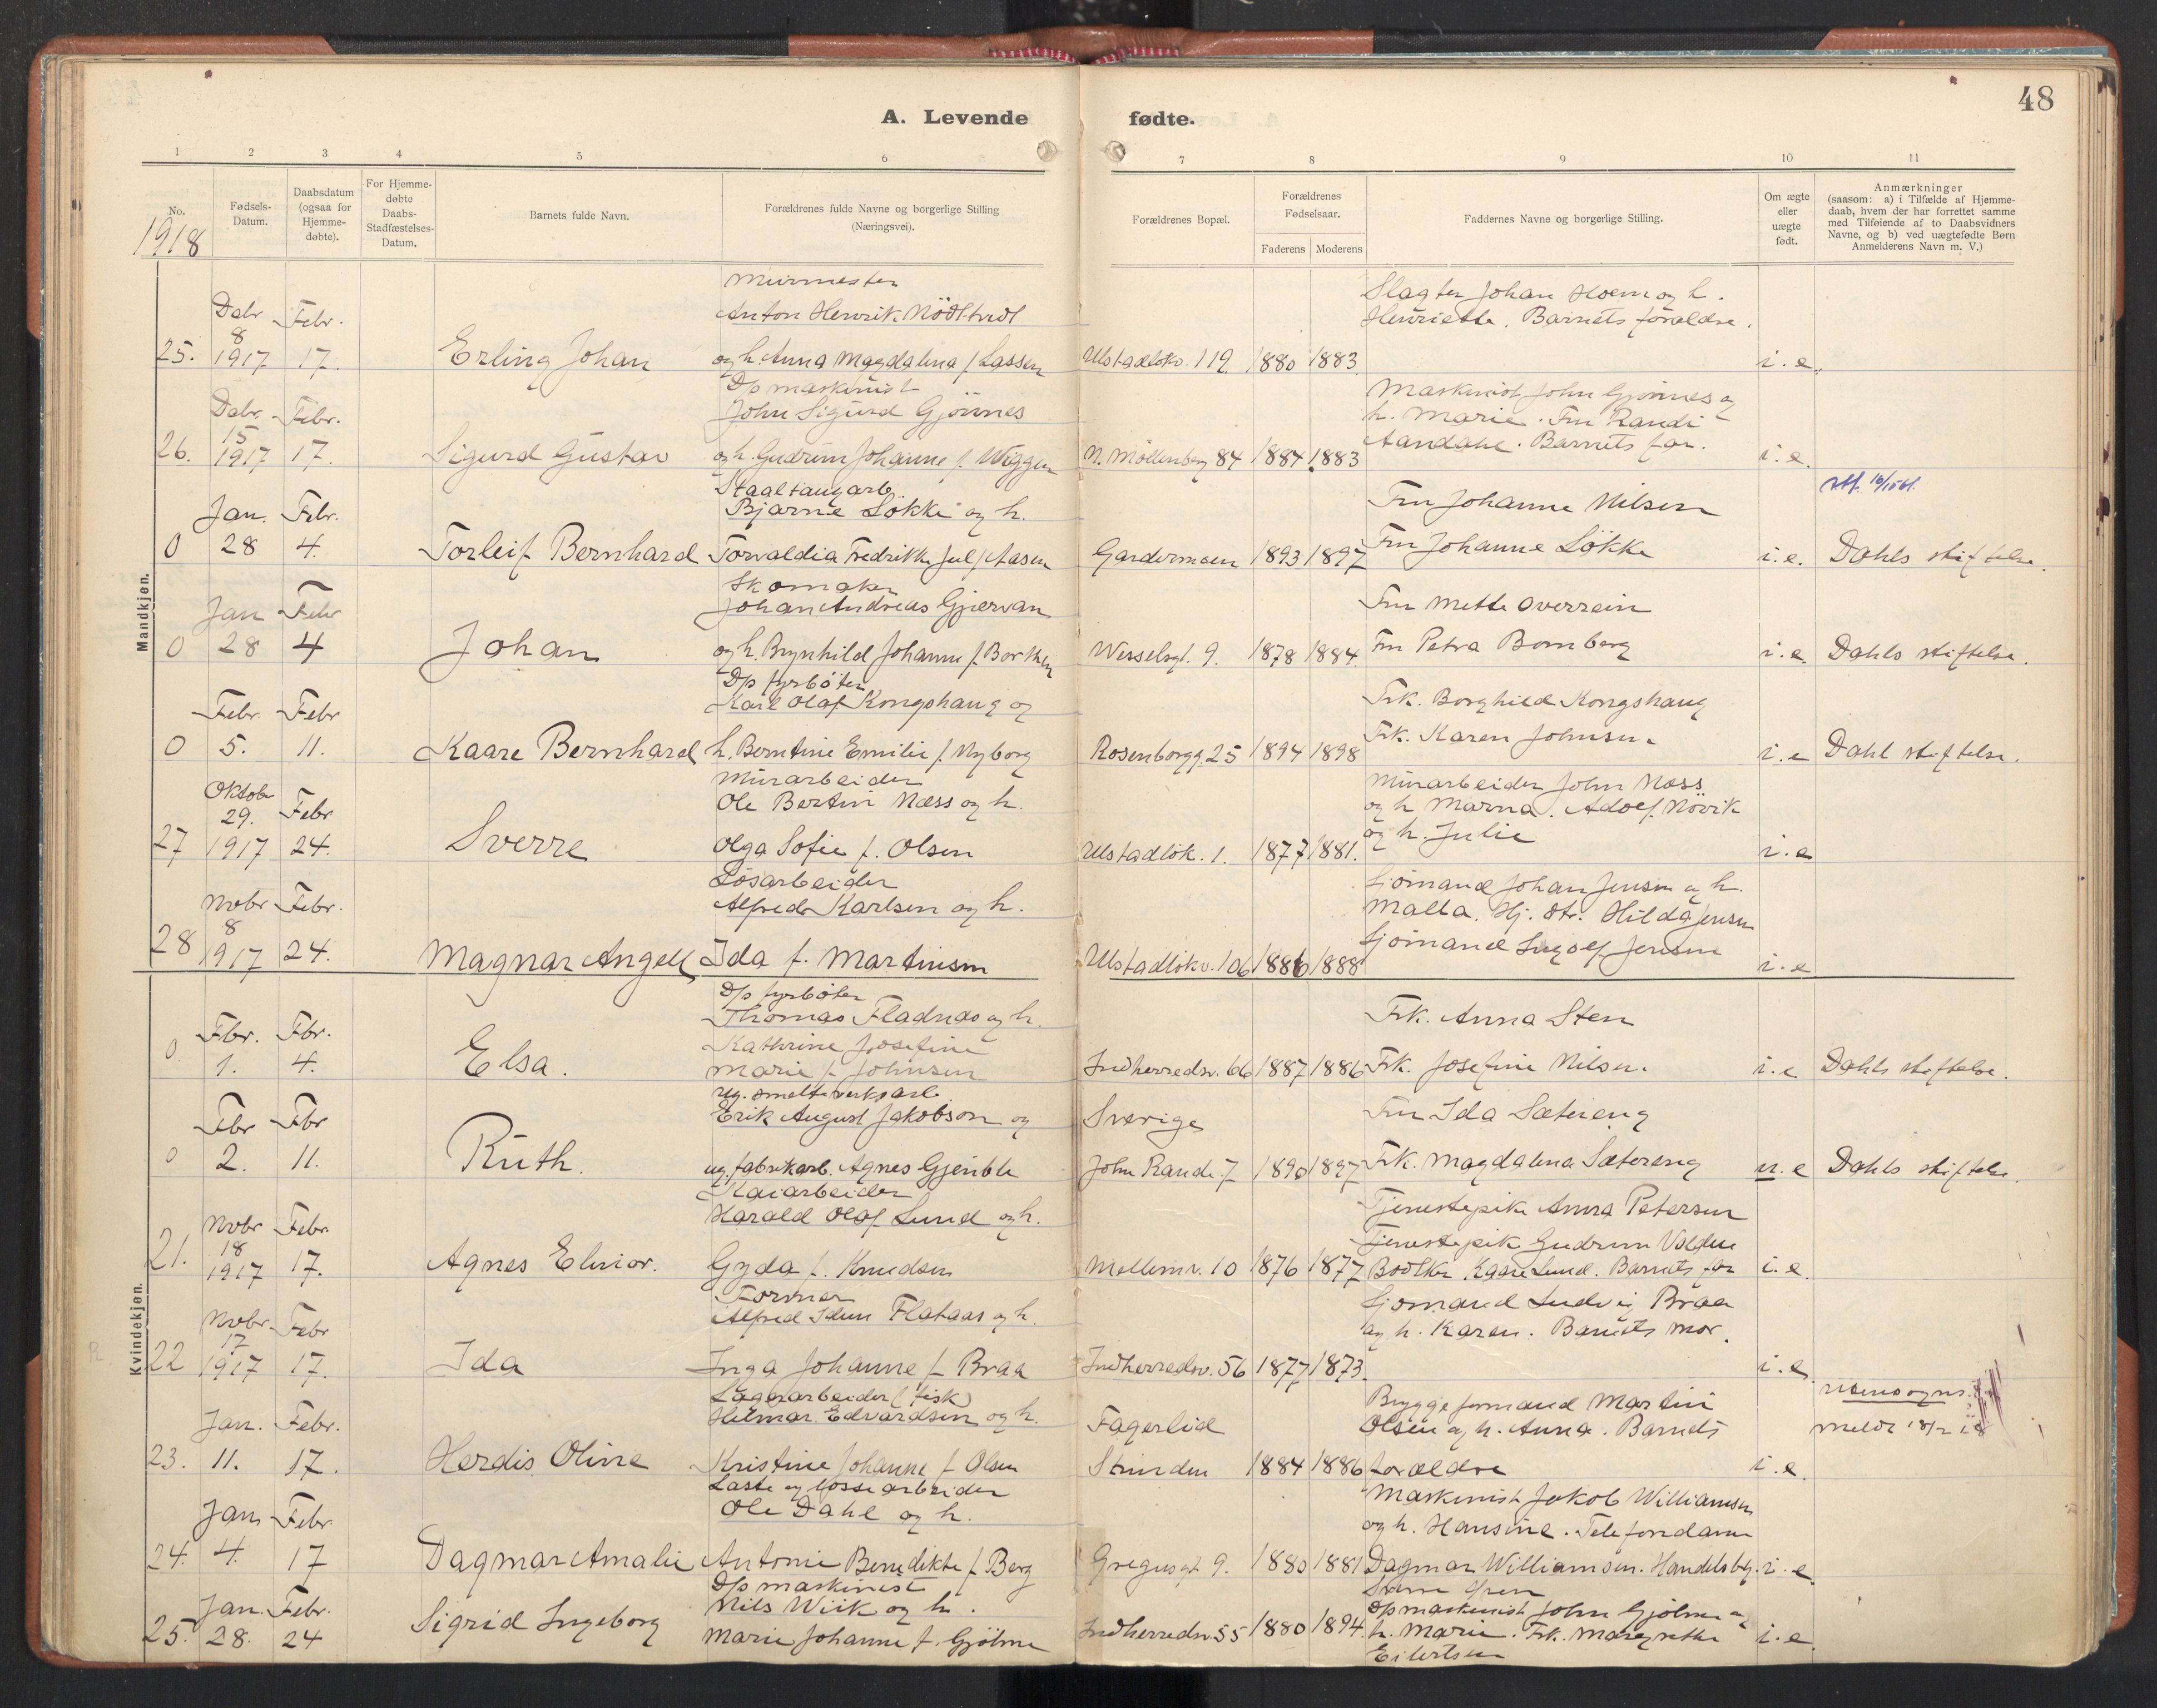 48
A. Levende fødte.
1 2 3 4 5 6 7 8 9 10 11
No.
Fødsels-
Datum.
Daabsdatum
(ogsaa for
Hjemme-
døbte).
For Hjemme-
døbte
Daabs-
Stadfæstelses-
Datum.
Barnets fulde Navn.
Forældrenes fulde Navne og borgerlige Stilling
(Næringsvei).
Forældrenes Bopæl.
Forældrenes
Fødselsaar.
Faderens Moderens
Faddernes Navne og borgerlige Stilling.
Om ægte
eller
uægte
født.
Anmærkninger
(saasom: a) i Tilfælde af Hjemme-
daab, hvem der har forrettet samme
med Tilføiende af to Daabsvidners
Navne, og b) ved uægtefødte Børn
Anmelderens Navn m. V.)
1918
Mandkjøn.
25.
Dcbr 8 1917
Febr. 17.
Erling Johan
Murmester
Anton Henrik Nödtvedt
og h. Anna Magdalena f. Lassen
Ulstadlökv. 119. 1880 1883.
Slagter Johan Hoem og h.
Henriette. Barnets forældre.
i. e.
26.
Dcbr. 15 1917
Febr. 17.
Sigurd Gustav
D/s maskinist
John Sigurd Gjönnes
og h. Gudrun Johanne f. Wiggen
N. Möllenberg 84 1884 1883
Maskinist John Gjönnes og
h. Marie. Fru Randi
Aandahl. Barnets far.
i. e.
0
Jan. 28
Febr. 4.
Torleif Bernhard
Staaltaugarb.
Bjarne Lökke og h.
Torvaldia Fredrikke Jul f. Aasen
Gardermoen 1893 1897
Fru Johanne Nilsen
Fru Johanne Lökke
i. e. Dahls stiftelse.
0
Jan 28
Febr 4
Johan
Skomaker
Johan Andreas Gjervan
og h. Brynhild Johanne f. Borthen
Wesselsgt. 9. 1878 1884.
Fru Mette Overrein
Fru Petra Bomberg
i. e. Dahls stiftelse.
0
Febr. 5.
Febr 11.
Kaare Bernhard
D/s fyrböter
Karl Olaf Kongshaug og
h. Berntine Emilie f. Nyborg
Rosenborgg. 25 1894 1898
Frk. Borghild Kongshaug
Frk. Karen Johnsen.
i. e Dahl stiftelse.
27
Oktobr 29. 1917
Febr 24.
Sverre
Murarbeider
Ole Bertin Næss og h.
Olga Sofie f. Olsen
Ulstadlök. 1. 1877 1881.
Murarbeider John Næss
og h Marna. Adolf Növik
og h. Julie
i. e
28
Novbr 8 1917
Febr. 24.
Magnar Angell
Lösarbeider
Alfred Karlsen og h.
Ida f. Martinsen
Ulstadlökv. 106 1886 1888
Sjömand Johan Jensen og h.
Malla. Hj. dtr. Hilda Jensen
Sjömand Ingolf Jensen
i. e
Kvindekjøn.
0
Fbr. 1.
Fbr. 4.
Elsa.
D/s fyrböter
Thomas Fladnes og h.
Kathrine Josefine
Marie f. Johnsen
Indherredsv. 66 1887 1886
Frk. Anna Sten
Frk. Josefine Nilsen.
i. e Dahls stiftelse.
0
Fbr 2.
Fbr 11.
Ruth.
Ug. smelteverksarb.
Erik August Jakobson og
ug. fabrikarb. Agnes Gjenble
Sverige
John Rande. 7 1890 1897
Fru Ida Sætereng
Frk. Magdalena Sætereng
u. e Dahls stiftelse.
21.
Novbr 18 1917
Febr. 17.
Agnes Elinor.
Kaiarbeider
Harald Olaf Lund og h.
Gyda f. Knudsen
Mellemv. 10 1876 1877
Tjenestepike Anna Petersen
Tjenestepik Gudrun Volden
Kaare Lund. Barnets far
i. e.
22
Novbr. 17 1917
Febr 17.
Ida
Former
Alfred Idun Flataas og h.
Inga Johanne f. Braa
Indherredsv. 56 1877 1873.
Sjömand Ludvig Braa
og h. Karen. Barnets mor.
i. e.
23.
Jan. 11.
Febr. 17.
Herdis Oline
Lagerarbeider (fisk)
Hilmar Edvardsen og h.
Kristine Johanne f. Olsen
Fagerlid
Strinden 1884 1886
Bryggeformand Martin
Olsen og h. Anna. Barnets
forældre
i. e.
Utensogns.
meldt 18/2 18
24.
Jan 4.
Febr. 17
Dagmar Amalie
Laste og lossearbeider
Ole Dahl og h.
Antonie Benedikte f. Berg
Gregusgt 9. 1880 1881
Maskinist Jakob Williamsen
og h. Hansine. Telefondame
Dagmar Williamsen. Handelsbtj.
i. e.
25.
Jan. 28.
Febr. 24
Sigrid Ingeborg
D/s maskinist
Nils Wiik og h.
Marie Johanne f. Gjölme
Indherredsv. 55 1880 1894.
D/s maskinist John Gjölme og
h. Marie. Frk. Margrethe
Eilertsen
i. e.